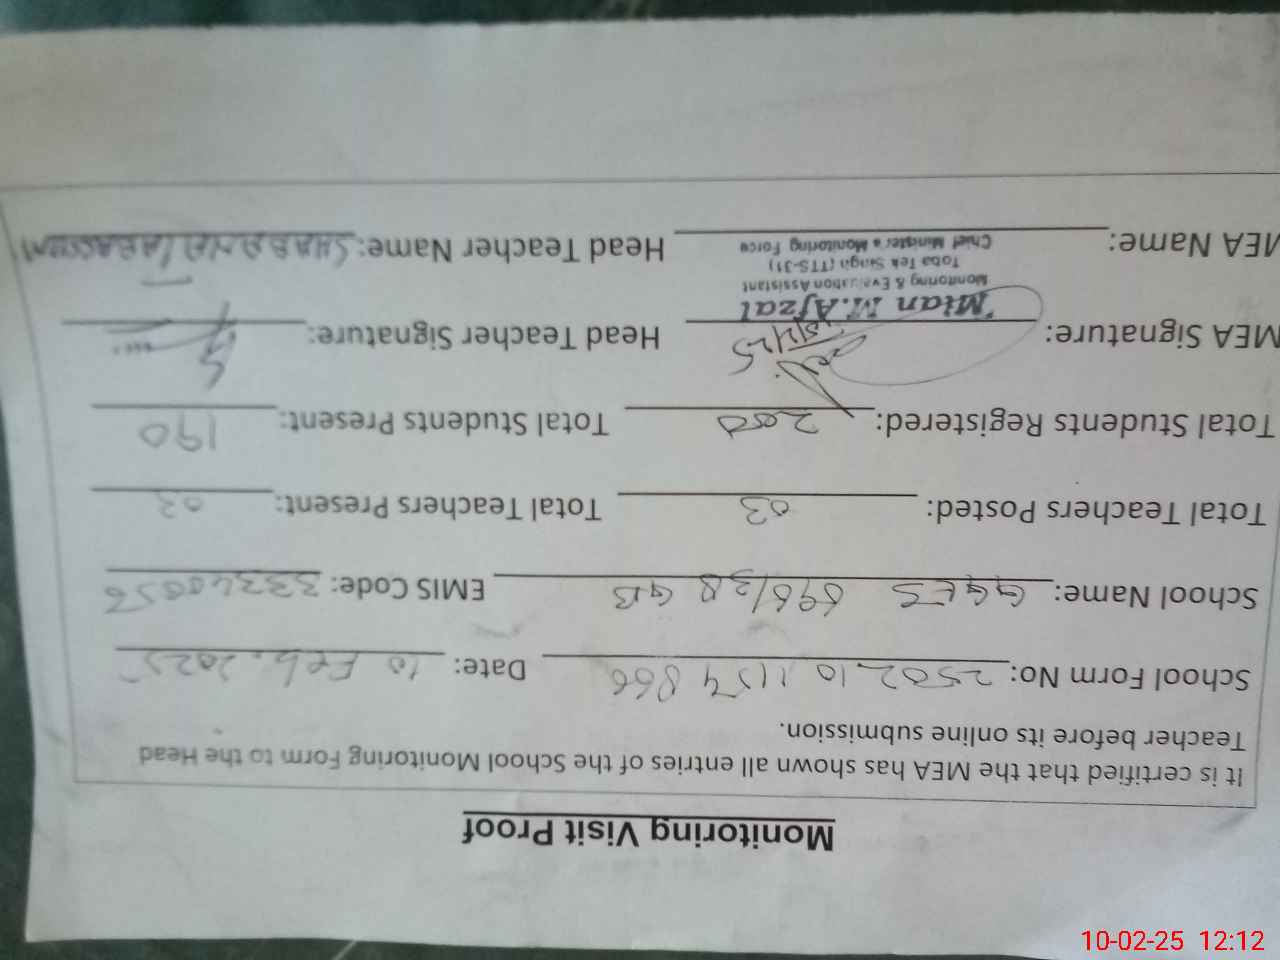 Monitoring Visit Proof
It is certified that the MEA has shown all entries of the School Monitoring Form to the Head
Teacher before its online submission.
School Form No: 2502101154866 Date: 10 Feb. 2025
School Name: GGES 696/38 GB EMIS Code: 33340056
Total Teachers Posted: 03 Total Teachers Present: 03
Total Students Registered: 200 Total Students Present: 190
MEA Signature: Head Teacher Signature:
Mian M.Afzal
Monitoring & Evaluation Assistant
Toba Tek Singh (TTS-31)
Chief Minister's Monitoring Force
MEA Name: Head Teacher Name: SHABANA
10-02-25 12:12